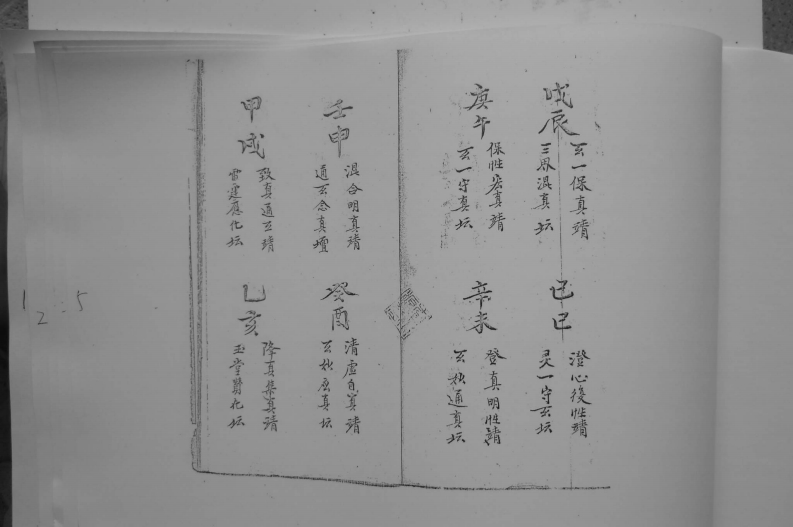 戊辰
玄一保真靖
三界混真坛
己巳
澄心後性靖
灵一守玄坛
庚午
保性宏真靖
玄一守真坛
辛未
登真明性靖
玄
通真坛
壬申
混合明真靖
通玄念真壇
癸酉
清虚
真靖
玄
真坛
甲戌
致真通玄靖
雷霆應化坛
乙亥
降真集真靖
玉堂賛化坛
1
2-5